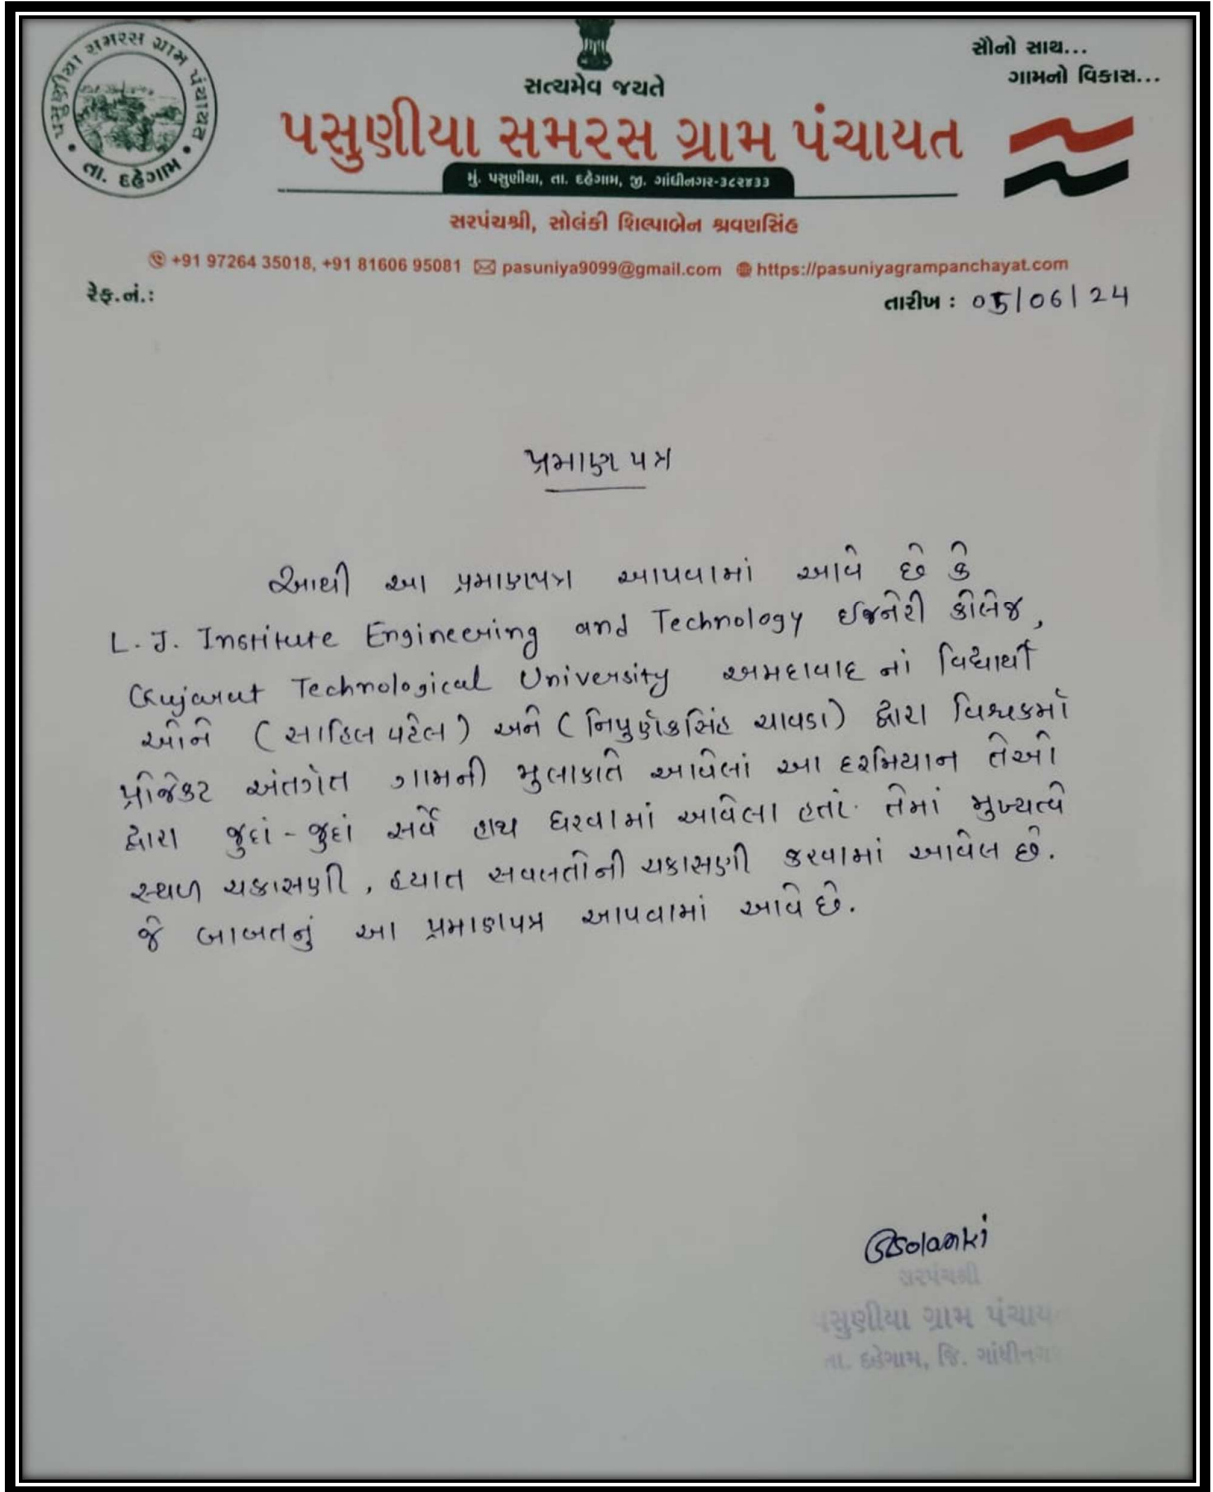 પસુણીયા સમરસ ગ્રામ પંચાયત
તા. દહેગામ
સત્યમેવ જયતે
સૌનો સાથ...
ગામનો વિકાસ...
પસુણીયા સમરસ ગ્રામ પંચાયત
મું. પસુણીયા, તા. દહેગામ, જી. ગાંધીનગર-૩૮૨૪૩૩
સરપંચશ્રી, સોલંકી શિલ્પાબેન શ્રવણસિંહ
+91 97264 35018, +91 81606 95081 pasuniya9099@gmail.com https://pasuniyagrampanchayat.com
રેફ.નં.:
તારીખ : 05/06/24
પ્રમાણ પત્ર
આથી આ પ્રમાણપત્ર આપવામાં આવે છે કે
L. J. Institute Engineering and Technology ઈજનેરી કોલેજ,
Gujarat Technological University અમદાવાદ નાં વિદ્યાર્થી
ઓને (સાહિલ પટેલ) અને (નિપુણૅકસિંહ ચાવડા) દ્વારા વિશ્વકર્મા
પ્રોજેકટ અંતર્ગત ગામની મુલાકાતે આવેલાં આ દરમિયાન તેઓ
દ્વારા જુદાં-જુદાં સર્વે હાથ ધરવામાં આવેલા હતાં. તેમાં મુખ્યત્વે
સ્થળ ચકાસણી, હયાત સવલતોની ચકાસણી કરવામાં આવેલ છે.
જે બાબતનું આ પ્રમાણપત્ર આપવામાં આવે છે.
Solanki
સરપંચશ્રી
પસુણીયા ગ્રામ પંચાયત
તા. દહેગામ, જિ. ગાંધીનગર